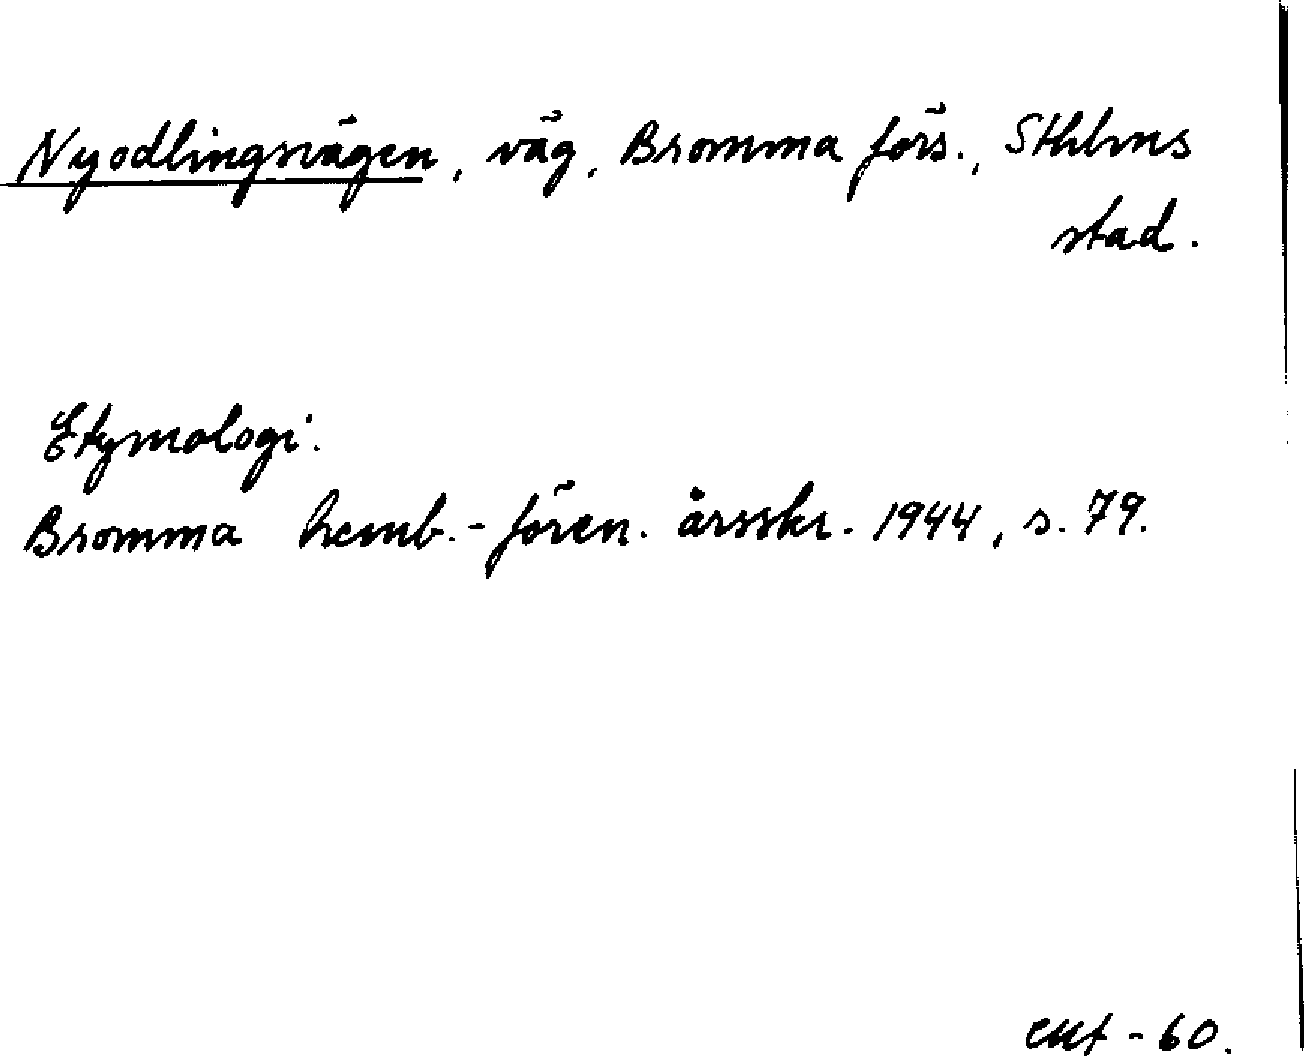 Nyodlingsvägen, väg, Bromma förs., Sthlms
stad.
Etymologi.
Bromma hemb.-fören. årsskr. 1944, s. 79.
-60.